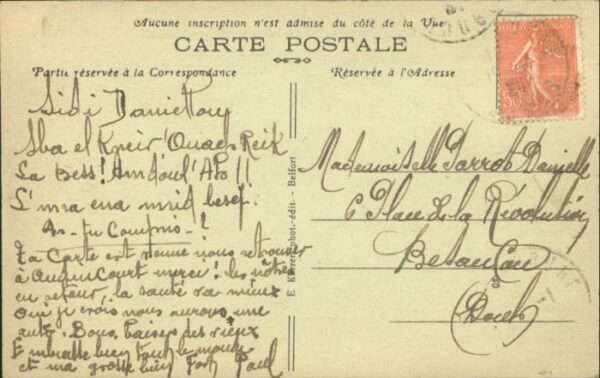 Aucune inscription n'est admise du côté de la Vue
CARTE POSTALE
Partie réservée à la Correspondance
Réservée à l'Adresse
Sidi
Sba el Kreir
La Bess !
L'mra ena mrid besef.
As-tu Compris - ?
Ta Carte est venue nous retrouver
à Audincourt merci ! les nôtres
en retour. la santé va mieux
oui je crois nous aurons une
auto. Bons baisers des vieux
Embrasse bien tout le monde
et ma grosse bien Fort Paul
E. édit. - Belfort
Mademoiselle Parrot Danielle
6 Place de la Révolution
Besancon
Doubs